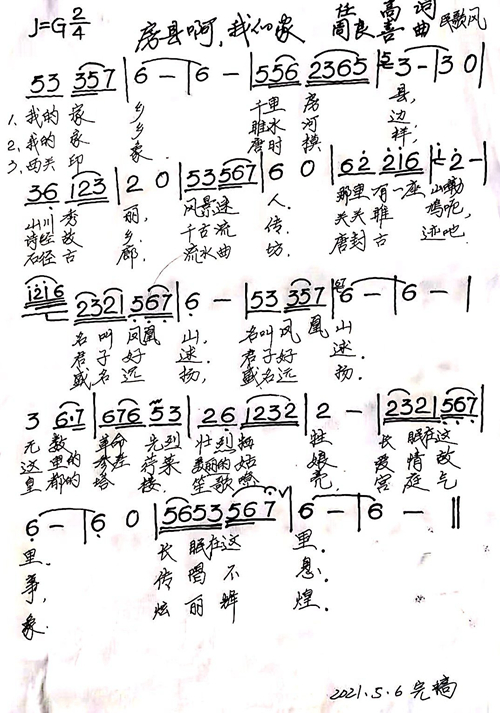 J=G 2/4
房县啊,我们家 任高词
周良喜曲 民歌风
53 357 | 6 - | 6 - | 556 2365 | 3 - | 3 0 |
1. 我的家乡 千里房县,
2. 我的家乡 睢水河边
3. 西关印象 唐时模样,
36 123 | 2 0 | 53 567 | 6 0 | 62 216 | 2 - |
山川秀丽, 风景迷人. 那里有一座山
诗经故乡. 千古流传. 关关雎鸠呢,
石径古廊. 流水曲坊. 唐封古迹吧.
1216 2321 567 | 6 - | 53 357 | 6 - | 6 - |
名叫凤凰山. 名叫凤凰山
君子好逑. 君子好逑.
盛名远扬, 盛名远扬.
3 67 | 676 53 | 26 1232 | 2 - | 2321 567 |
无数革命先烈壮烈牺牲 长眠在这
这里的参差荇菜美丽的姑娘 爱情故
皇都的塔楼笙歌嘹亮 宫庭气
6 - | 6 0 | 56553 567 | 6 - | 6 - ||
里. 长眠在这里.
事, 传唱不息.
象. 炫丽辉煌.
2021.5.6 完稿